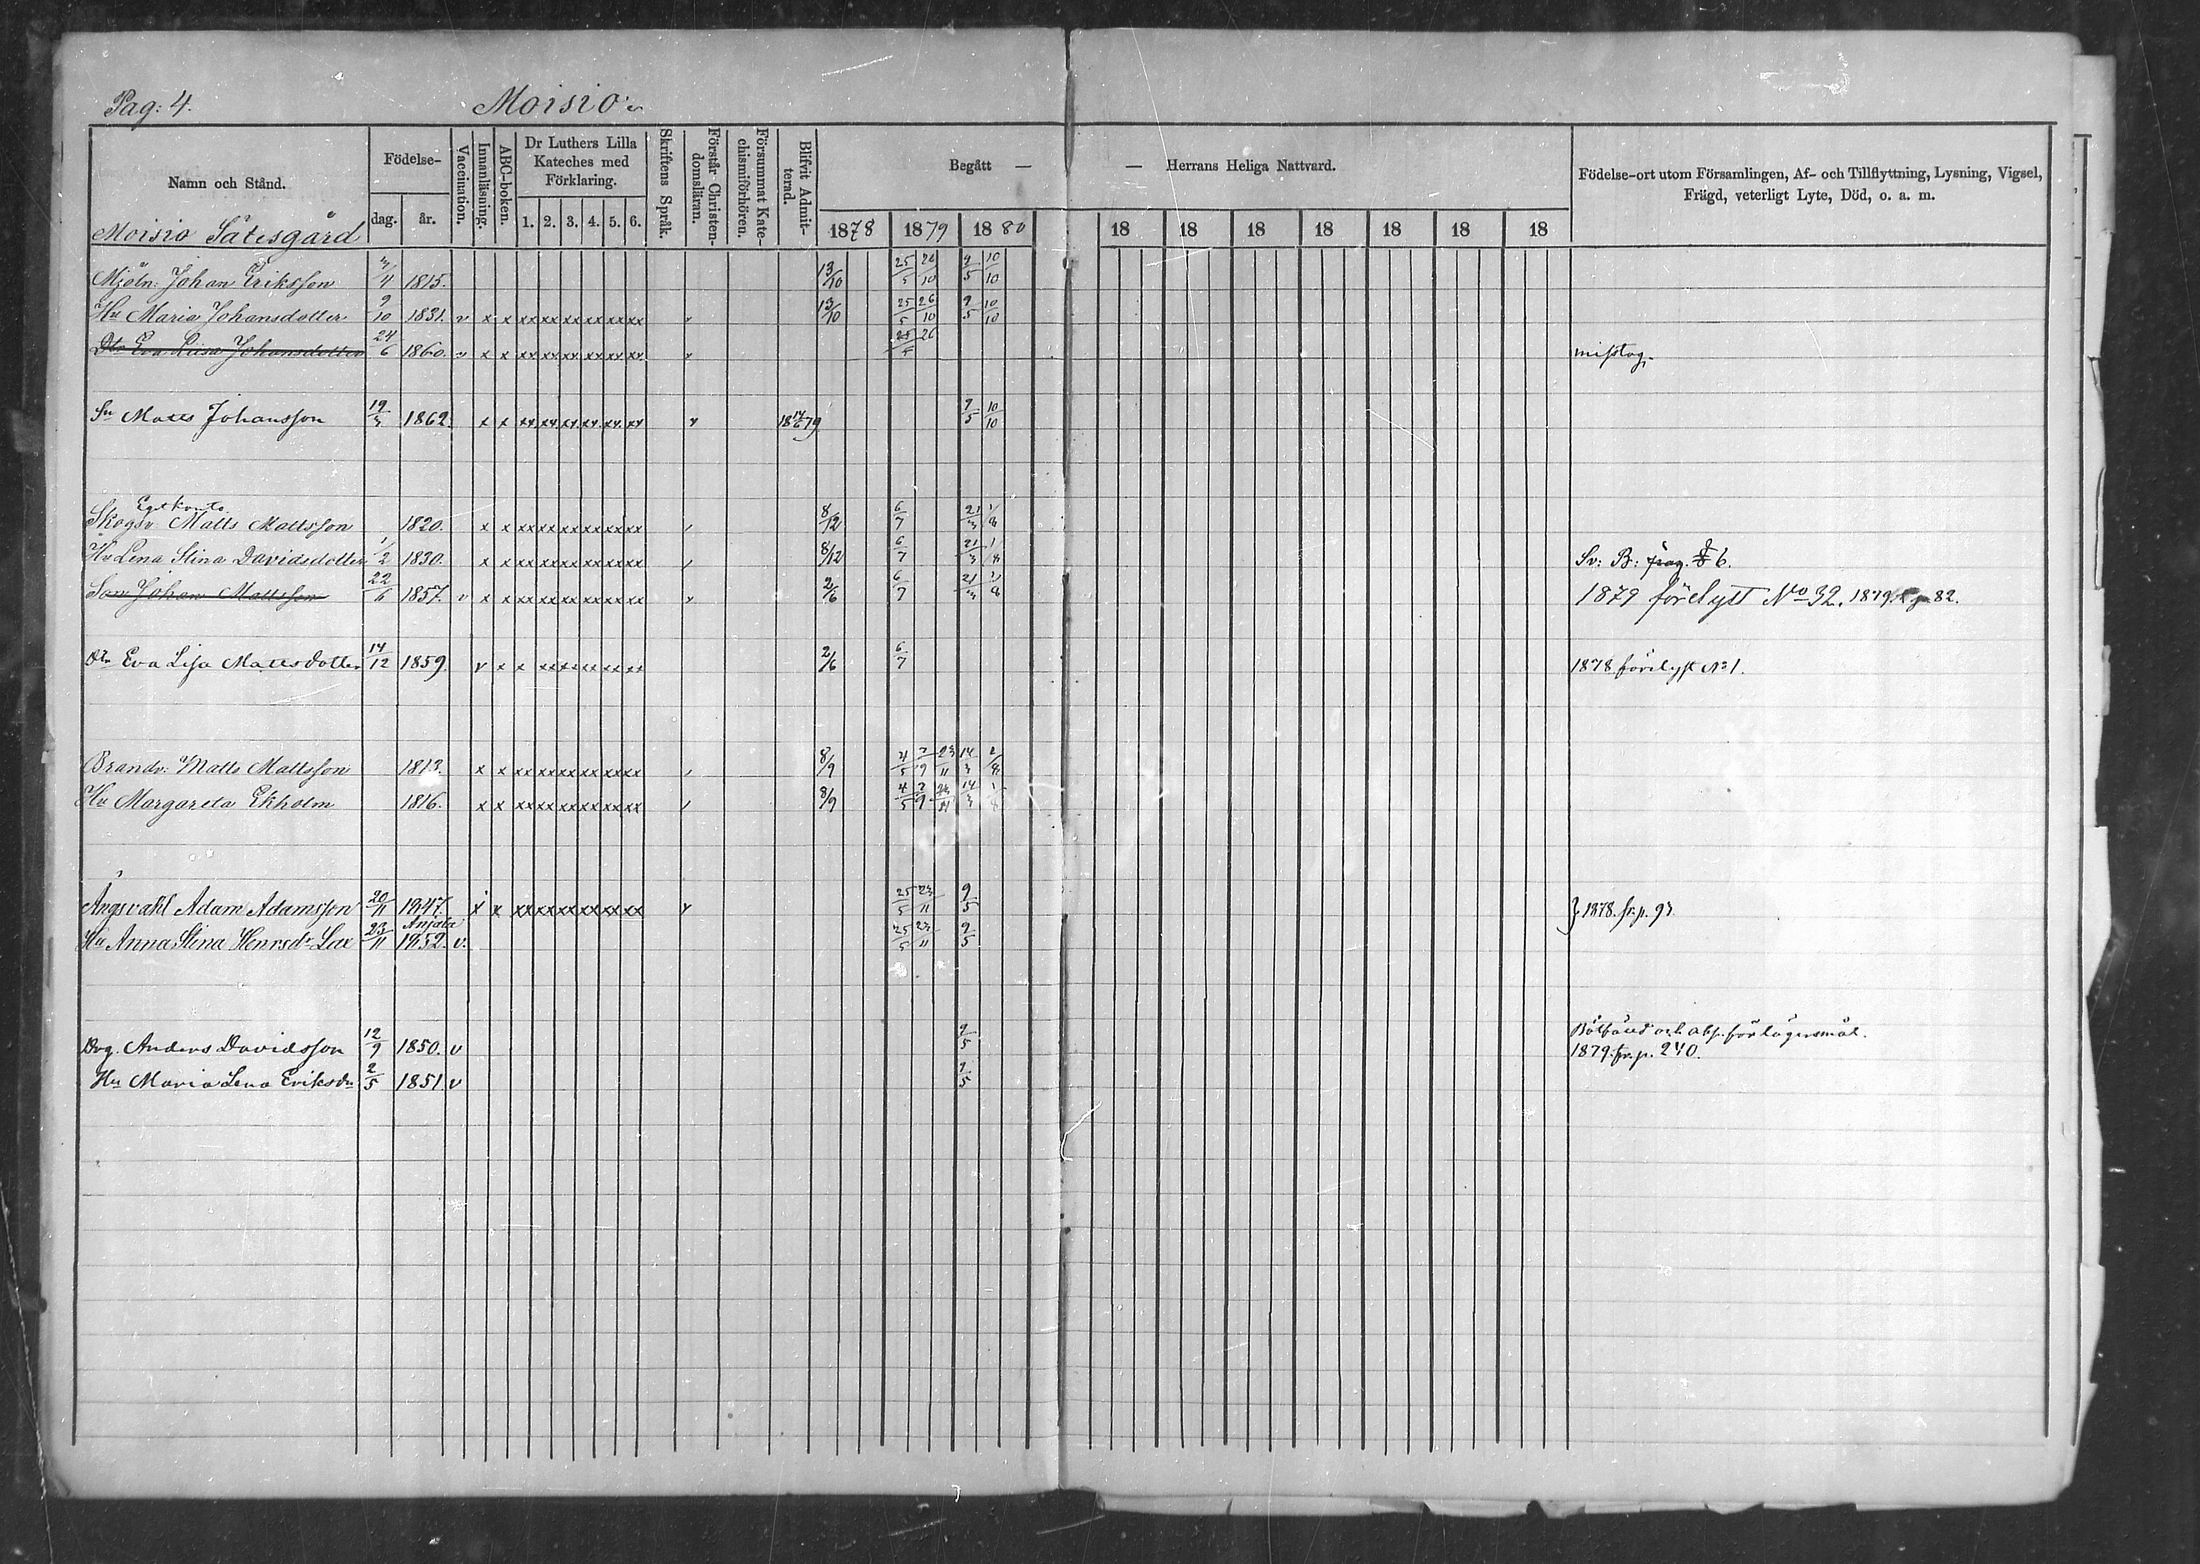 Pag: 4. Moisio
Namn och Stånd. Födelse- Vaccination. Innanläsning. ABC-boken. Dr Luthers Lilla Kateches med Förklaring. Skriftens Språk. Förstår Christendomsläran. Försummat Katechismiförhören. Blifvit Admitterad. Begått — — Herrans Heliga Nattvard. Födelse-ort utom Församlingen, Af- och Tillflyttning, Lysning, Vigsel,
Frägd, veterligt Lyte, Död, o. a. m.
dag. år. 1. 2. 3. 4. 5. 6. 1878 1879 1880 18 18 18 18 18 18 18
Moisio Sätesgård
Mjöln: Johan Eriksson 1815. 13/10 25/5 26/10 9/5 10/10
Hu Maria Johansdotter 9/10 1831. v x x xx xx xx xx xx xx 13/10 25/5 26/10 9/5 10/10
Dtr Eva Lisa Johansdotter 24/6 1860. v x x xx xx xx xx xx xx misstag.
Sn Matts Johansson 1862. x x xx xx xx xx xx xx 18 14/6 79 9/5 10/10
Skogsv Matts Mattsson 1820. x x xx xx xx xx xx xx 8/12 6/7 21/3 1/8
Hu Lena Stina Davidsdotter 1/2 1830. x x xx xx xx xx xx xx 8/12 6/7 21/3 1/8 Sv: B:
Son Johan Mattsson 22/6 1857. v x x xx xx xx xx xx xx 2/6 6/7 21/3 1/8 1879 förelyst No 32. 1879 82.
Dtr Eva Lisa Mattsdotter 14/12 1859. v x x x xx xx xx xx xx 2/6 6/7 1878 förelyst No 1.
Brandv: Matts Mattsson 1813. x x xx xx xx xx xx xx 8/9 4/5 23/11 14/3
Hu Margareta Ekholm 1816. x x xx xx xx xx xx xx 8/9 4/5 23/11 14/3
Ängsvakt Adam Adamsson 20/11 1847. x x xx xx xx xx xx xx 25/5 23/11 9/5 } 1878. fr. p. 93
Anjala
Hu Anna Stina Henrsdr Lax 23/11 1852 v. 25/5 23/11 9/5
Drg. Anders Davidsson 12/9 1850. v 9/5
1879. fr. p. 240.
Hu Maria Lena Eriksdr 2/5 1851 v 9/5